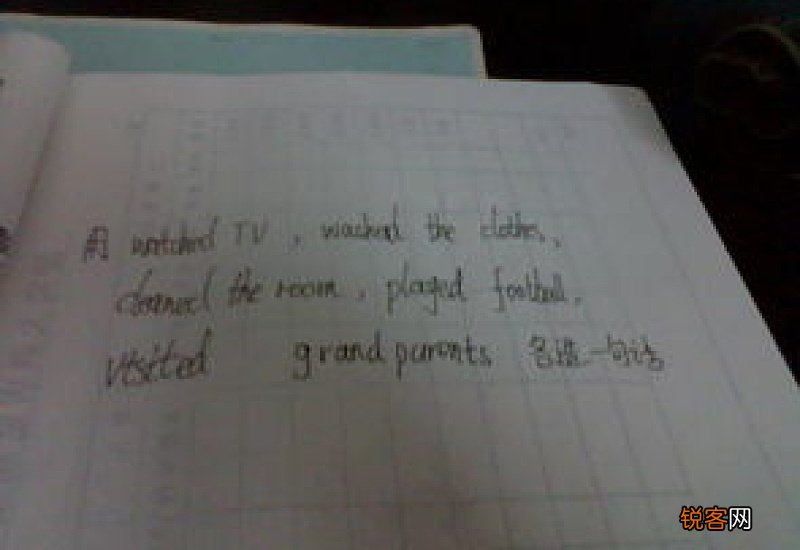 用 watched TV , washed the clothes,
cleaned the room , played football,
visited grandparents 各造一句话
锐客网